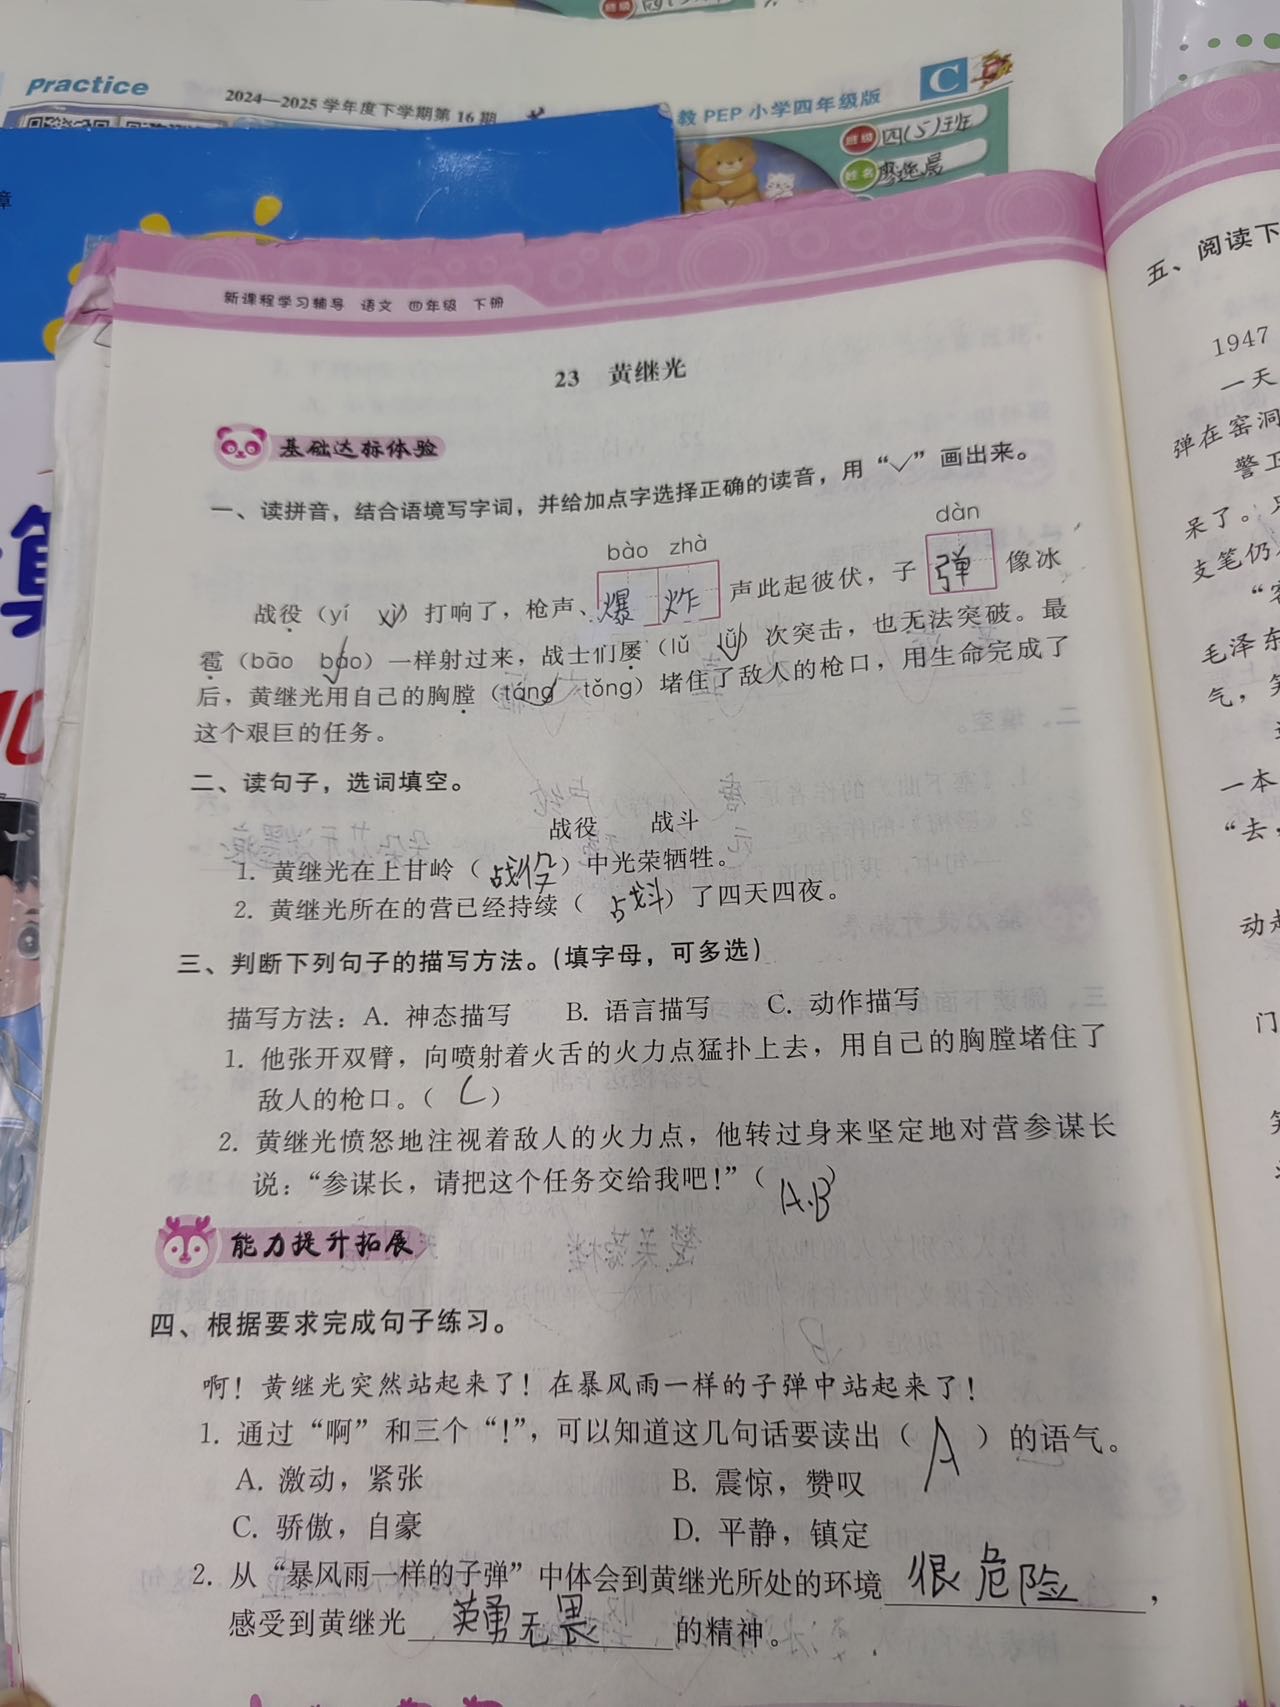 Practice
2024—2025 学年度下学期第 16 期
教 PEP 小学四年级版
C
班级 四(5)班
姓名
章
新课程学习辅导 语文 四年级 下册
23 黄继光
基础达标体验
一、读拼音，结合语境写字词，并给加点字选择正确的读音，用“✓”画出来。
bào zhà dàn
战役（yí yì）打响了，枪声、爆炸声此起彼伏，子弹像冰
雹（bāo báo）一样射过来，战士们屡（lǔ lǚ）次突击，也无法突破。最
后，黄继光用自己的胸膛（táng tǒng）堵住了敌人的枪口，用生命完成了
这个艰巨的任务。
二、读句子，选词填空。
战役 战斗
1. 黄继光在上甘岭（战役）中光荣牺牲。
2. 黄继光所在的营已经持续（战斗）了四天四夜。
三、判断下列句子的描写方法。（填字母，可多选）
描写方法：A. 神态描写 B. 语言描写 C. 动作描写
1. 他张开双臂，向喷射着火舌的火力点猛扑上去，用自己的胸膛堵住了
敌人的枪口。（C）
2. 黄继光愤怒地注视着敌人的火力点，他转过身来坚定地对营参谋长
说：“参谋长，请把这个任务交给我吧！”（A.B）
能力提升拓展
四、根据要求完成句子练习。
啊！黄继光突然站起来了！在暴风雨一样的子弹中站起来了！
1. 通过“啊”和三个“！”，可以知道这几句话要读出（A）的语气。
A. 激动，紧张 B. 震惊，赞叹
C. 骄傲，自豪 D. 平静，镇定
2. 从“暴风雨一样的子弹”中体会到黄继光所处的环境很危险，
感受到黄继光英勇无畏的精神。
五、阅读下
1947
一天
弹在窑洞
警卫
呆了。
支笔仍
毛泽东
气，
一本
“去，
动
门